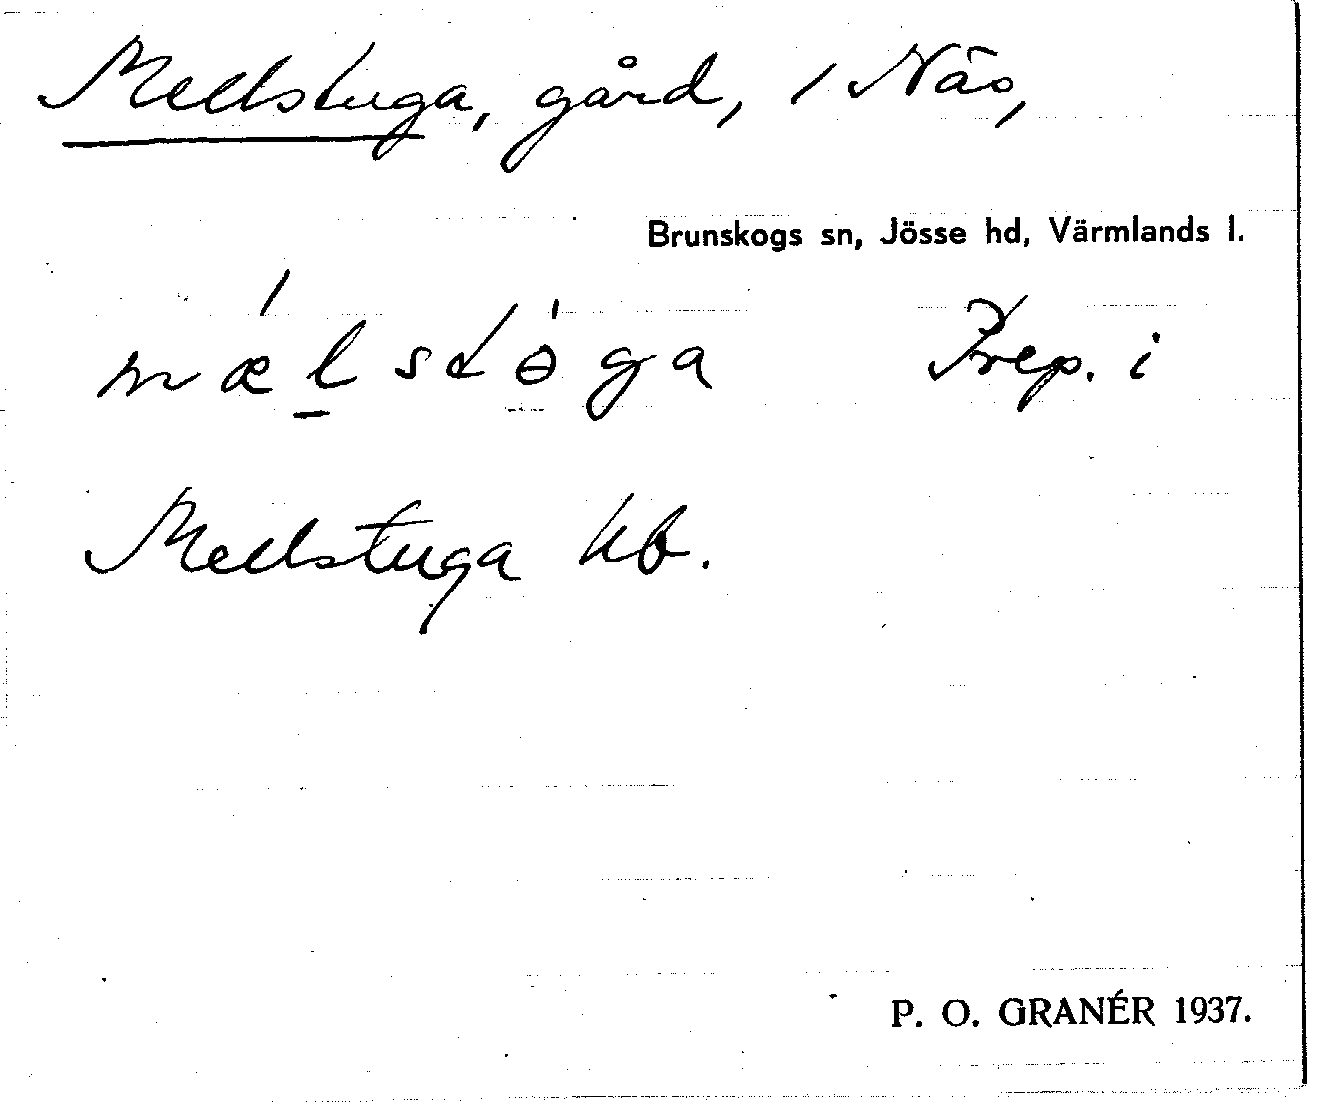 Mellstuga, gård, i Näs,
Brunskogs sn, Jösse hd, Värmlands l.
mæ´l̲stɵ̀ga Prep. i
Mellstuga kb.
P. O. GRANÉR 1937.